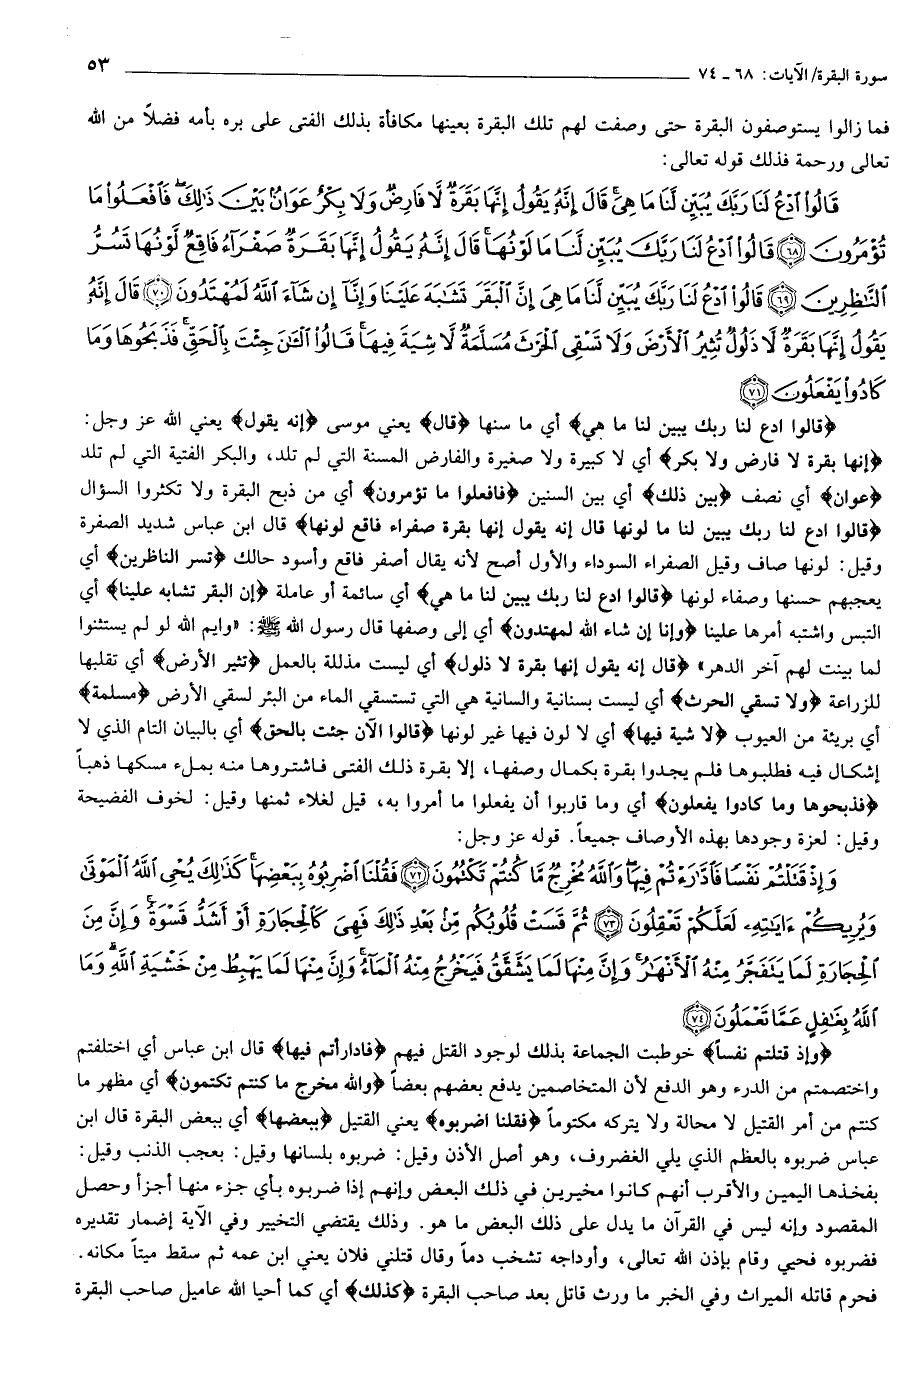 سورة البقرة/ الآيات: ٦٨ ـ ٧٤ ٥٣
فما زالوا يستوصفون البقرة حتى وصفت لهم تلك البقرة بعينها مكافأة بذلك الفتى على بره بأمه فضلاً من الله
تعالى ورحمة فذلك قوله تعالى:
قَالُوا۟ ٱدْعُ لَنَا رَبَّكَ يُبَيِّن لَّنَا مَا هِىَ ۚ قَالَ إِنَّهُۥ يَقُولُ إِنَّهَا بَقَرَةٌ لَّا فَارِضٌ وَلَا بِكْرٌ عَوَانٌۢ بَيْنَ ذَٰلِكَ ۖ فَٱفْعَلُوا۟ مَا
تُؤْمَرُونَ ﴿٦٨﴾ قَالُوا۟ ٱدْعُ لَنَا رَبَّكَ يُبَيِّن لَّنَا مَا لَوْنُهَا ۚ قَالَ إِنَّهُۥ يَقُولُ إِنَّهَا بَقَرَةٌ صَفْرَآءُ فَاقِعٌ لَّوْنُهَا تَسُرُّ
ٱلنَّٰظِرِينَ ﴿٦٩﴾ قَالُوا۟ ٱدْعُ لَنَا رَبَّكَ يُبَيِّن لَّنَا مَا هِىَ إِنَّ ٱلْبَقَرَ تَشَٰبَهَ عَلَيْنَا وَإِنَّآ إِن شَآءَ ٱللَّهُ لَمُهْتَدُونَ ﴿٧٠﴾ قَالَ إِنَّهُۥ
يَقُولُ إِنَّهَا بَقَرَةٌ لَّا ذَلُولٌ تُثِيرُ ٱلْأَرْضَ وَلَا تَسْقِى ٱلْحَرْثَ مُسَلَّمَةٌ لَّا شِيَةَ فِيهَا ۚ قَالُوا۟ ٱلْـَٰٔنَ جِئْتَ بِٱلْحَقِّ ۚ فَذَبَحُوهَا وَمَا
كَادُوا۟ يَفْعَلُونَ ﴿٧١﴾
﴿قالوا ادع لنا ربك يبين لنا ما هي﴾ أي ما سنها ﴿قال﴾ يعني موسى ﴿إنه يقول﴾ يعني الله عز وجل:
﴿إنها بقرة لا فارض ولا بكر﴾ أي لا كبيرة ولا صغيرة والفارض المسنة التي لم تلد، والبكر الفتية التي لم تلد
﴿عوان﴾ أي نصف ﴿بين ذلك﴾ أي بين السنين ﴿فافعلوا ما تؤمرون﴾ أي من ذبح البقرة ولا تكثروا السؤال
﴿قالوا ادع لنا ربك يبين لنا ما لونها قال إنه يقول إنها بقرة صفراء فاقع لونها﴾ قال ابن عباس شديد الصفرة
وقيل: لونها صاف وقيل الصفراء السوداء والأول أصح لأنه يقال أصفر فاقع وأسود حالك ﴿تسر الناظرين﴾ أي
يعجبهم حسنها وصفاء لونها ﴿قالوا ادع لنا ربك يبين لنا ما هي﴾ أي سائمة أو عاملة ﴿إن البقر تشابه علينا﴾ أي
التبس واشتبه أمرها علينا ﴿وإنا إن شاء الله لمهتدون﴾ أي إلى وصفها قال رسول الله ﷺ: «وايم الله لو لم يستثنوا
لما بينت لهم آخر الدهر» ﴿قال إنه يقول إنها بقرة لا ذلول﴾ أي ليست مذللة بالعمل ﴿تثير الأرض﴾ أي تقلبها
للزراعة ﴿ولا تسقي الحرث﴾ أي ليست بسنانية والسانية هي التي تستسقي الماء من البئر لسقي الأرض ﴿مسلمة﴾
أي بريئة من العيوب ﴿لا شية فيها﴾ أي لا لون فيها غير لونها ﴿قالوا الآن جئت بالحق﴾ أي بالبيان التام الذي لا
إشكال فيه فطلبوها فلم يجدوا بقرة بكمال وصفها، إلا بقرة ذلك الفتى فاشتروها منه بملء مسكها ذهباً
﴿فذبحوها وما كادوا يفعلون﴾ أي وما قاربوا أن يفعلوا ما أمروا به، قيل لغلاء ثمنها وقيل: لخوف الفضيحة
وقيل: لعزة وجودها بهذه الأوصاف جميعاً. قوله عز وجل:
وَإِذْ قَتَلْتُمْ نَفْسًا فَٱدَّٰرَْٰٔتُمْ فِيهَا ۖ وَٱللَّهُ مُخْرِجٌ مَّا كُنتُمْ تَكْتُمُونَ ﴿٧٢﴾ فَقُلْنَا ٱضْرِبُوهُ بِبَعْضِهَا ۚ كَذَٰلِكَ يُحْىِ ٱللَّهُ ٱلْمَوْتَىٰ
وَيُرِيكُمْ ءَايَٰتِهِۦ لَعَلَّكُمْ تَعْقِلُونَ ﴿٧٣﴾ ثُمَّ قَسَتْ قُلُوبُكُم مِّنۢ بَعْدِ ذَٰلِكَ فَهِىَ كَٱلْحِجَارَةِ أَوْ أَشَدُّ قَسْوَةً ۚ وَإِنَّ مِنَ
ٱلْحِجَارَةِ لَمَا يَتَفَجَّرُ مِنْهُ ٱلْأَنْهَٰرُ ۚ وَإِنَّ مِنْهَا لَمَا يَشَّقَّقُ فَيَخْرُجُ مِنْهُ ٱلْمَآءُ ۚ وَإِنَّ مِنْهَا لَمَا يَهْبِطُ مِنْ خَشْيَةِ ٱللَّهِ ۗ وَمَا
ٱللَّهُ بِغَٰفِلٍ عَمَّا تَعْمَلُونَ ﴿٧٤﴾
﴿وإذ قتلتم نفساً﴾ خوطبت الجماعة بذلك لوجود القتل فيهم ﴿فادارأتم فيها﴾ قال ابن عباس أي اختلفتم
واختصمتم من الدرء وهو الدفع لأن المتخاصمين يدفع بعضهم بعضاً ﴿والله مخرج ما كنتم تكتمون﴾ أي مظهر ما
كنتم من أمر القتيل لا محالة ولا يتركه مكتوماً ﴿فقلنا اضربوه﴾ يعني القتيل ﴿ببعضها﴾ أي ببعض البقرة قال ابن
عباس ضربوه بالعظم الذي يلي الغضروف، وهو أصل الأذن وقيل: ضربوه بلسانها وقيل: بعجب الذنب وقيل:
بفخذها اليمين والأقرب أنهم كانوا مخيرين في ذلك البعض وإنهم إذا ضربوه بأي جزء منها أجزأ وحصل
المقصود وإنه ليس في القرآن ما يدل على ذلك البعض ما هو. وذلك يقتضي التخيير وفي الآية إضمار تقديره
فضربوه فحيي وقام بإذن الله تعالى، وأوداجه تشخب دماً وقال قتلني فلان يعني ابن عمه ثم سقط ميتاً مكانه.
فحرم قاتله الميراث وفي الخبر ما ورث قاتل بعد صاحب البقرة ﴿كذلك﴾ أي كما أحيا الله عاميل صاحب البقرة